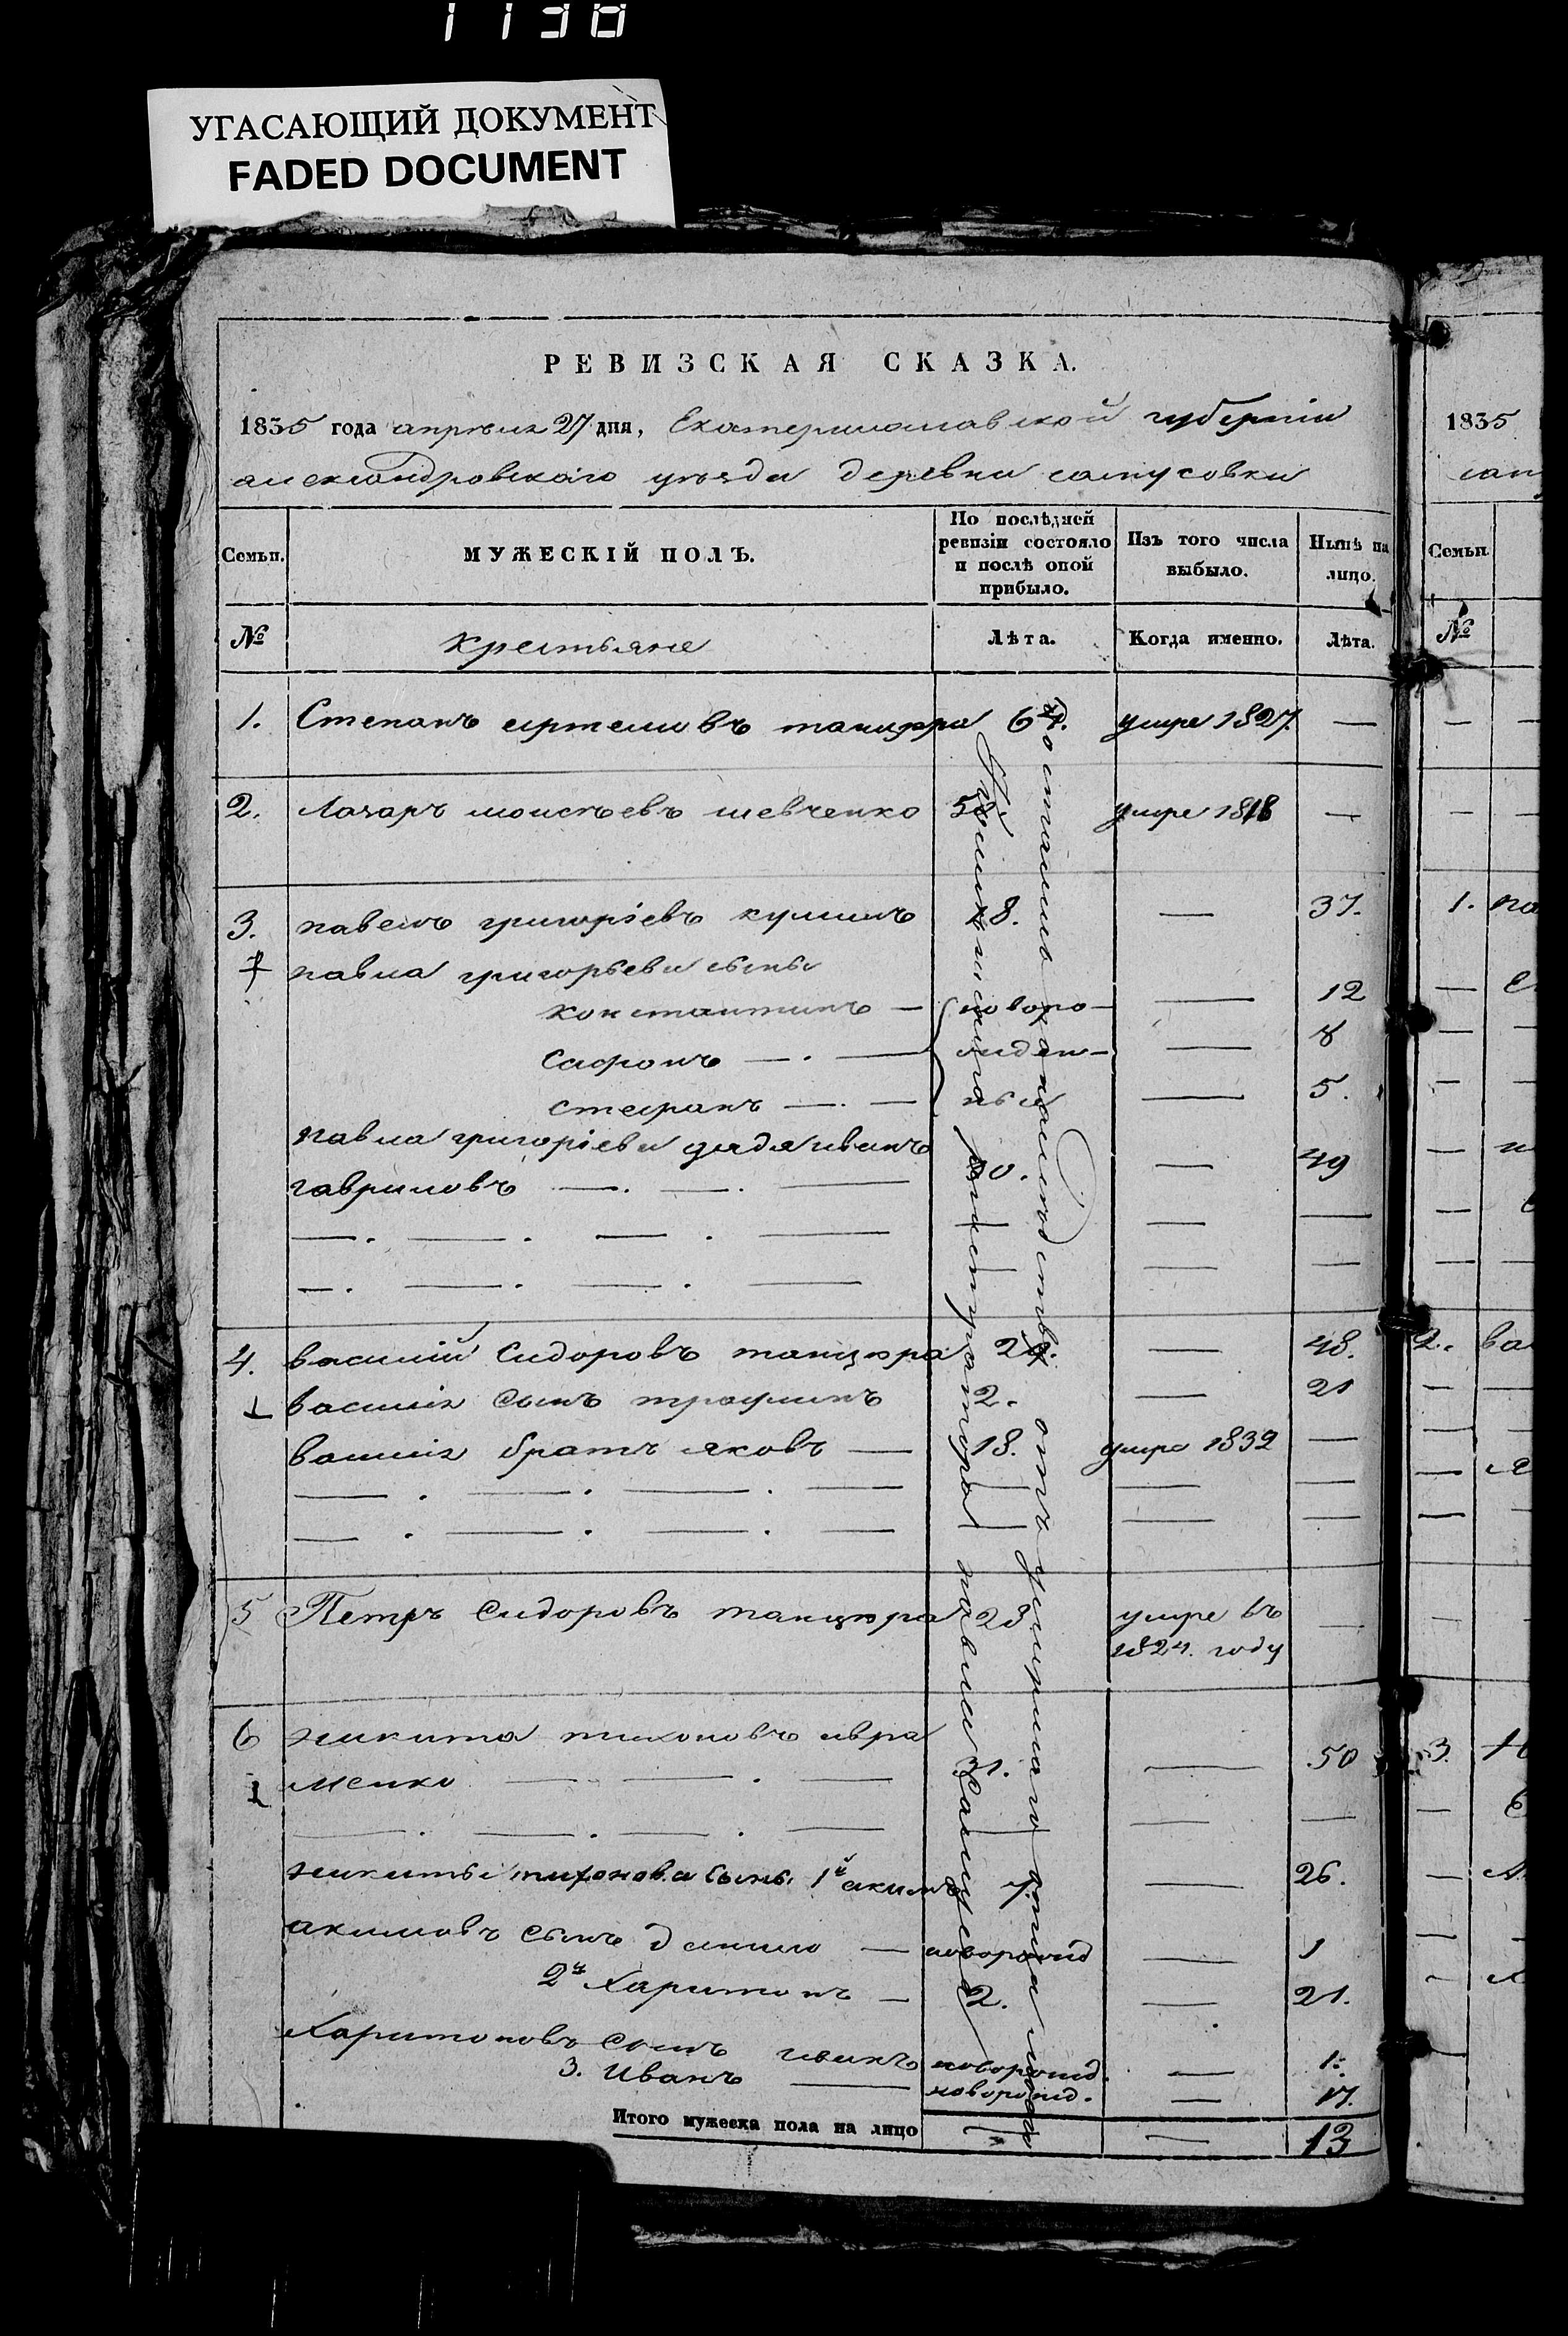 1138
УГАСАЮЩИЙ ДОКУМЕНТ
FADED DOCUMENT
РЕВИЗСКАЯ СКАЗКА.
1835 года апреля 27 дня, Екатеринославской губернiи
александровскаго уезда деревни сапусовки
Семьи. МУЖЕСКIЙ ПОЛЪ. По послѣдней ревизiи состояло и послѣ оной прибыло. Изъ того числа выбыло. Нынѣ на лицо.
№ крестьяне Лѣта. Когда именно. Лѣта.
1. Степанъ артемовъ танцюра умре 1827. —
2. Лазарь моисѣевъ шевченко 58. умре 1818 —
3. павелъ григорiевъ 18. — 37.
павла григорьева сыны
константинъ — новоро— — 12
сафронъ — . — жден— — 8
стефанъ — . — ныя — 5.
павла григорiева дядя иванъ
гавриловъ — . — . — 30. — 49
4. василий Сидоровъ танцюра 29. — 48.
василiя сынъ трофимъ 2. — 21
василiя братъ яковъ — 18. умре 1832 —
5 Петръ Сидоровъ танцюра 23 умре въ —
1824. году
6 никита тихоновъ авра
менко — . — . — 31. — 50
никиты тихонова сыны 1й акимъ 7. — 26.
акимовъ сынъ данило — новорожд — 1
2й Харитонъ — 2. — 21.
Харитоновъ сынъ иванъ новорожд. — 1.
3. Иванъ — новорожд. — 17.
Итого мужеска пола на лицо — — 13
доставшіяся по наследству отъ умершаго отца моего
павла Сапусова
1835
сапу
Семьи.
№
1. па
2. ва
3.